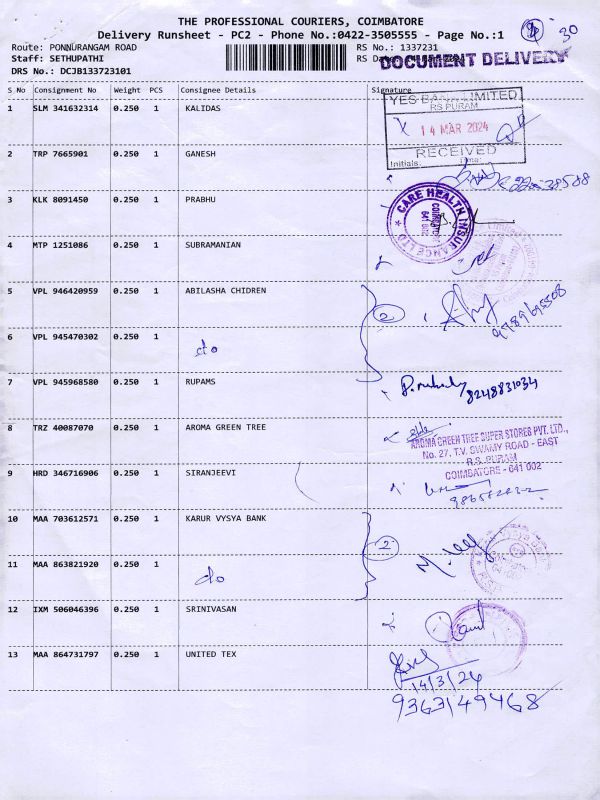 THE PROFESSIONAL COURIERS, COIMBATORE
Delivery Runsheet - PC2 - Phone No.:0422-3505555 - Page No.:1
30
Route: PONNURANGAM ROAD
RS No.: 1337231
Staff: SETHUPATHI
RS
DOCUMENT DELIVERY
DRS No.: DCJB133723101
S No Consignment No Weight PCS Consignee Details Signature
1 SLM 341632314 0.250 1 KALIDAS
YES BANK LIMITED
RS PURAM
14 MAR 2024
RECEIVED
Initials: Time:
2 TRP 7665901 0.250 1 GANESH
3 KLK 8091450 0.250 1 PRABHU
CARE HEALTH INSURANCE LTD
COIMBATORE
641 002
4 MTP 1251086 0.250 1 SUBRAMANIAN
5 VPL 946420959 0.250 1 ABILASHA CHIDREN
2
9789695508
6 VPL 945470302 0.250 1 do
7 VPL 945968580 0.250 1 RUPAMS
8248831034
8 TRZ 40087070 0.250 1 AROMA GREEN TREE
AROMA GREEN TREE SUPER STORES PVT. LTD.,
No. 27, T.V. SWAMY ROAD - EAST
R.S. PURAM
COIMBATORE - 641 002
9 HRD 346716906 0.250 1 SIRANJEEVI
10 MAA 703612571 0.250 1 KARUR VYSYA BANK
2
11 MAA 863821920 0.250 1 do
12 IXM 506046396 0.250 1 SRINIVASAN
13 MAA 864731797 0.250 1 UNITED TEX
14/3/24
9363149468